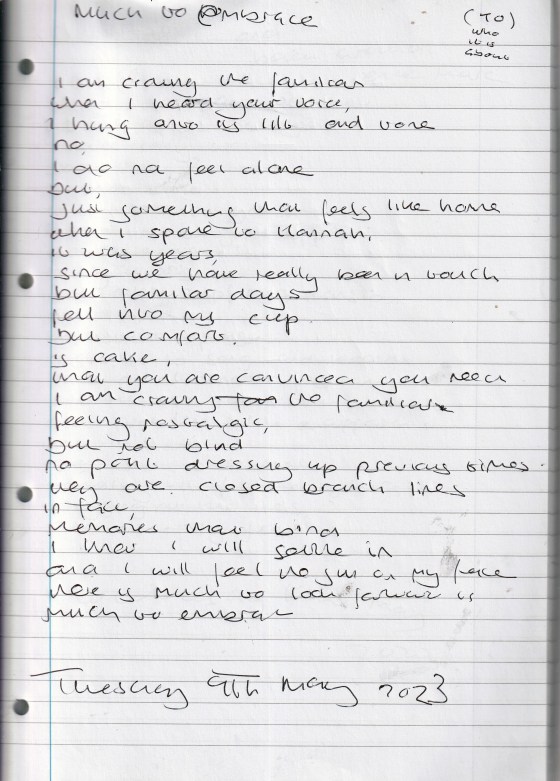 Much to Embrace
(TO)
who
it is
about
I am craving the familiar
when I heard your voice,
I hung onto its lilt and tone
no,
I do no feel alone
but,
just something that feels like home
when I spoke to Hannah,
it was years,
since we have really been in touch
but familiar days
fell into my cup
but comfort.
is cake,
that you are convinced you need
I am craving the familiar
feeling nostalgic,
but not blind
no point dressing up previous times.
they are closed branch lines
in fact,
Memories that bind
I know I will settle in
and I will feel the sun on my face
here is much to look forward is
much to embrace
Tuesday 9th May 2023